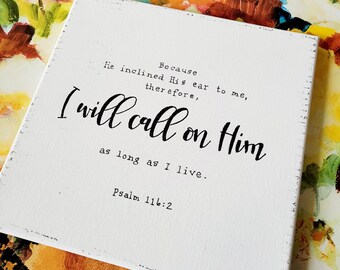 Because
He inclined His ear to me,
therefore,
I will call on Him
as long as I live.
Psalm 116:2